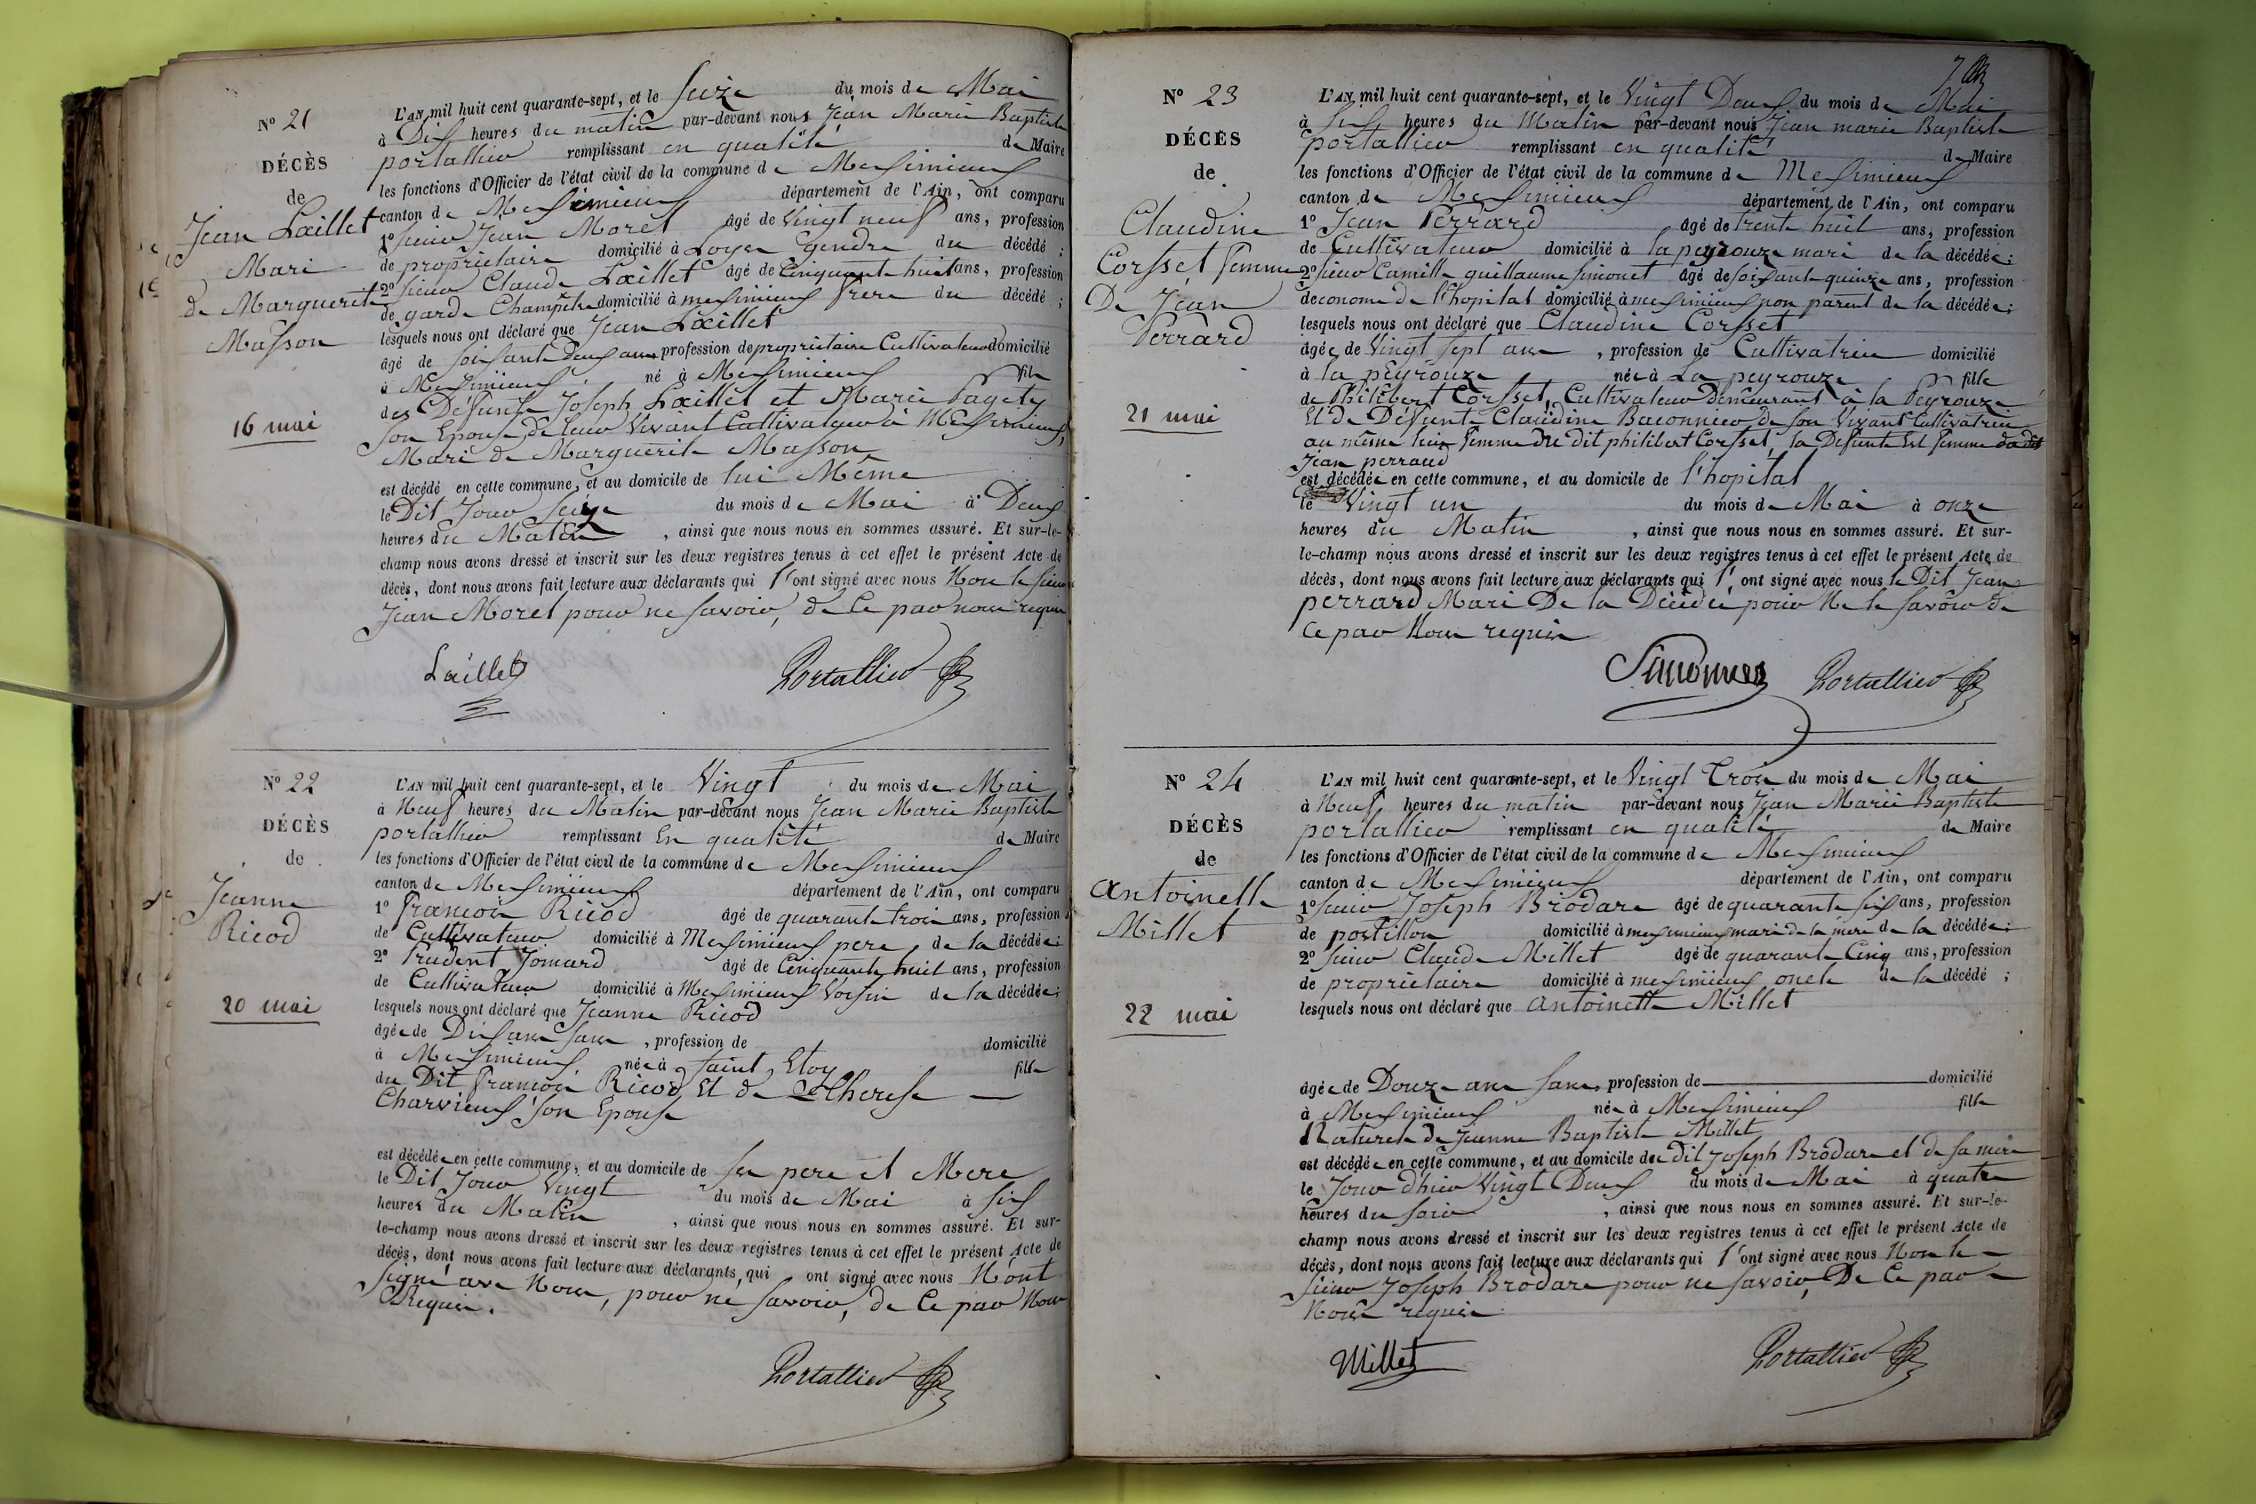 N° 21
DÉCÈS
de
Jean Laillet
Mari
de Marguerite
Masson
16 mai
L'AN mil huit cent quarante-sept, et le Seize du mois de Mai
à Dix heures du matin par-devant nous Jean Marie Baptiste
portallier remplissant en qualité de Maire
les fonctions d'Officier de l'état civil de la commune de Meximieux
canton de Meximieux département de l'Ain, ont comparu
1° sieur Jean Morel âgé de Vingt neuf ans, profession
de propriétaire domicilié à Loyes Gendre du décédé ;
2° sieur Claude Laillet âgé de Cinquante huit ans, profession
de garde Champêtre domicilié à meximieux frere du décédé ;
lesquels nous ont déclaré que Jean Laillet
âgé de soixante Deux ans profession de propriétaire Cultivateur domicilié
à Meximieux né à Meximieux fils
des Défunts Joseph Laillet et Marie Pagety
son Epouse de leur Vivant Cultivateur à Meximieux,
Mari de Marguerite Masson
est décédé en cette commune, et au domicile de lui Même
le Dit Jour Seize du mois de Mai à Deux
heures du Matin , ainsi que nous nous en sommes assuré. Et sur-le-
champ nous avons dressé et inscrit sur les deux registres tenus à cet effet le présent Acte de
décès, dont nous avons fait lecture aux déclarants qui l'ont signé avec nous Non le sieur
Jean Morel pour ne savoir, de Ce par nous requis
Laillet Portallier
N° 22
DÉCÈS
de
Jeanne
Ricod
20 mai
L'AN mil huit cent quarante-sept, et le Vingt du mois de Mai
à Neuf heures du Matin par-devant nous Jean Marie Baptiste
portallier remplissant En qualité de Maire
les fonctions d'Officier de l'état civil de la commune de Meximieux
canton de Meximieux département de l'Ain, ont comparu
1° françois Ricod âgé de quarante trois ans, profession
de Cultivateur domicilié à Meximieux pere de la décédée ;
2° Prudent Jomard âgé de Cinquante huit ans, profession
de Cultivateur domicilié à Meximieux Voisin de la décédée ;
lesquels nous ont déclaré que Jeanne Ricod
âgée de Dix ans sans , profession de domicilié
à Meximieux née à saint Eloy fille
du Dit françois Ricod Et de Therese
Charvieux son Epouse
est décédée en cette commune, et au domicile de ses pere et Mere
le Dit Jour Vingt du mois de Mai à six
heures du Matin , ainsi que nous nous en sommes assuré. Et sur-
le-champ nous avons dressé et inscrit sur les deux registres tenus à cet effet le présent Acte de
décès, dont nous avons fait lecture aux déclarants, qui ont signé avec nous N'ont
signé avec Nous, pour ne savoir, de Ce par Nous
Requis.
Portallier
N° 23
DÉCÈS
de
Claudine
Corsset femme
De Jean
Perrard
21 mai
L'AN mil huit cent quarante-sept, et le Vingt Deux du mois de Mai
à six heures du Matin par-devant nous Jean marie Baptiste
portallier remplissant en qualité de Maire
les fonctions d'Officier de l'état civil de la commune de Meximieux
canton de Meximieux département de l'Ain, ont comparu
1° Jean Perrard âgé de trente huit ans, profession
de Cultivateur domicilié à la peyrouze mari de la décédée ;
2° sieur Camille guillaume simonet âgé de soixante quinze ans, profession
d'econome de l'hopital domicilié à meximieux non parent de la décédée ;
lesquels nous ont déclaré que Claudine Corsset
âgée de Vingt sept ans , profession de Cultivatrice domicilié
à la pEyrouze née à La peyrouze fille
de Philibert Corsset, Cultivateur Demeurant à la Peyrouze
Et de Défunte Claudine Baconnier de son Vivant Cultivatrice
au même lieu femme du dit philibert Corsset, la Defunte Est femme du dit
Jean perrard
est décédée en cette commune, et au domicile de l'hopital
le Vingt un du mois de Mai à onze
heures du Matin , ainsi que nous nous en sommes assuré. Et sur-
le-champ nous avons dressé et inscrit sur les deux registres tenus à cet effet le présent Acte de
décès, dont nous avons fait lecture aux déclarants qui l'ont signé avec nous le Dit Jean
perrard Mari De la Décédée pour Ne le savoir de
Ce par Nous requis
Simonnet Portallier
N° 24
DÉCÈS
de
antoinette
Millet
22 mai
L'AN mil huit cent quarante-sept, et le Vingt Trois du mois de Mai
à Neuf heures du matin par-devant nous Jean Marie Baptiste
portallier remplissant en qualité de Maire
les fonctions d'Officier de l'état civil de la commune de Meximieux
canton de Meximieux département de l'Ain, ont comparu
1° sieur Joseph Brodare âgé de quarante six ans, profession
de postillon domicilié à meximieux mari de la mere de la décédée ;
2° sieur Claude Millet âgé de quarante Cinq ans, profession
de propriétaire domicilié à meximieux oncle de la décédé ;
lesquels nous ont déclaré que antoinette Millet
âgée de Douze ans sans profession de domicilié
à Meximieux née à Meximieux fille
Naturelle de Jeanne Baptiste Millet
est décédée en cette commune, et au domicile du dit Joseph Brodare et de sa mere
le Jour d'hier Vingt Deux du mois de Mai à quatre
heures du soir , ainsi que nous nous en sommes assuré. Et sur-le-
champ nous avons dressé et inscrit sur les deux registres tenus à cet effet le présent Acte de
décès, dont nous avons fait lecture aux déclarants qui l'ont signé avec nous Non le
sieur Joseph Brodare pour ne savoir, De Ce par
Nous requis
Millet Portallier